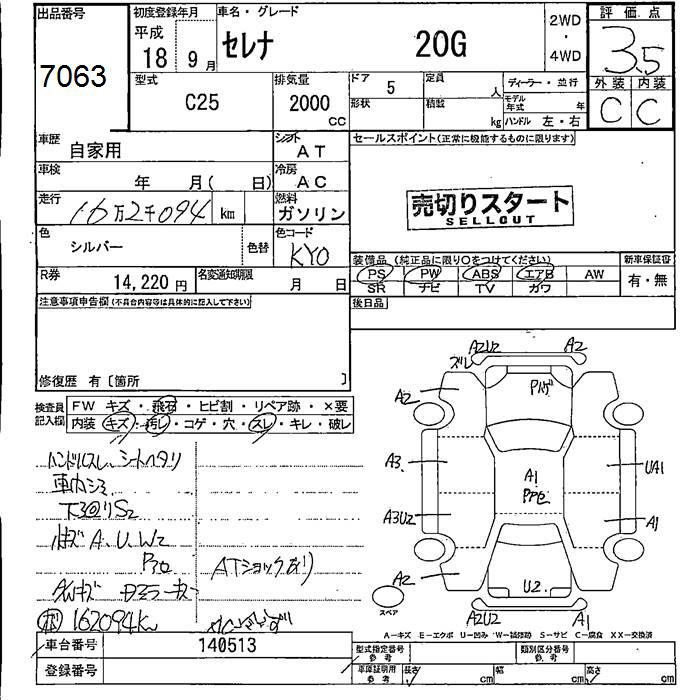 出品番号
7063
初度登録年月
平成
18 9月
車名・グレード
セレナ 20G
2WD
・
4WD
評価点
3.5
外装 内装
C C
型式
C25
排気量
2000
CC
ドア 5
形状
定員 人
積載 kg
ディーラー・並行
モデル年式 年
ハンドル 左・右
車歴
自家用
シフト
AT
セールスポイント(正常に機能するものに限ります)
車検
年 月( 日)
冷房
AC
走行
16万2千094 km
燃料
ガソリン
売切りスタート
SELLOUT
色
シルバー
色替
色コード
KY0
装備品 (純正品に限り○をつけてください)
新車保証書
PS PW ABS エアB AW
SR ナビ TV カワ
有・無
R券
14,220円
名変通知期限
月 日
後日品
注意事項申告欄(不具合内容等は具体的に記入して下さい)
修復歴 有〔箇所 〕
検査員記入欄
FW キズ・飛石・ヒビ割・リペア跡・×要
内装 キズ・汚レ・コゲ・穴・スレ・キレ・破レ
ハンドルスレ、シートヘタリ
車内シミ
下回りS2
A、U、W2
ATショック有り
162094K
A2U2 A2
ズレ
A2
A3
A3U2
A2
A1
UA1
A1
U2
A2U2 A1
スペア
A−キズ E−エクボ U−凹み W−補修跡 S−サビ C−腐食 XX−交換済
車台番号 140513
登録番号
型式指定番号
参考
類別区分番号
参考
車庫証明用
参考
長さ cm
幅 cm
高さ cm